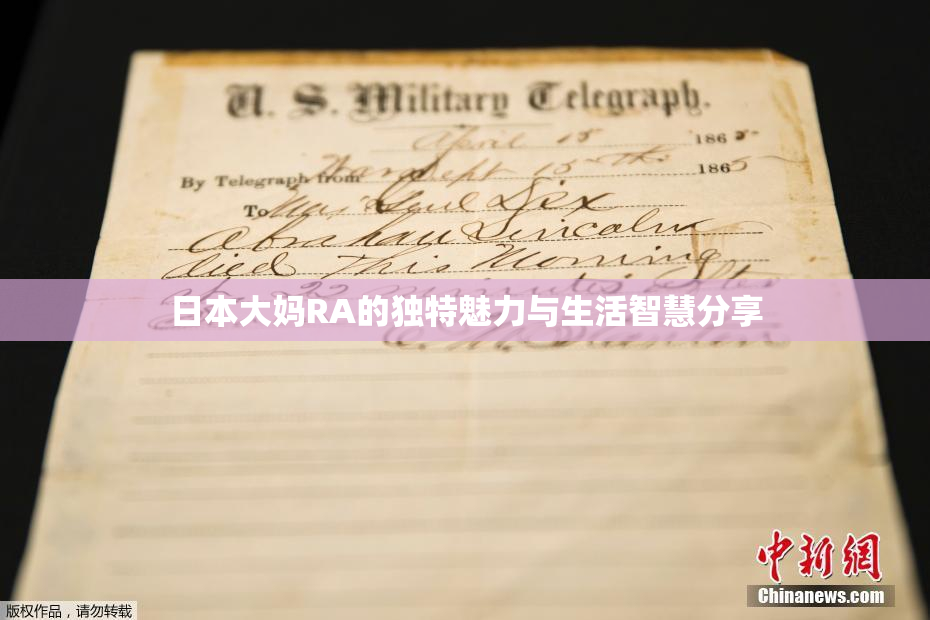 U. S. Military Telegraph.
April 15 1865
By Telegraph from War Dept 15th 1865
To Maj Genl Dix
Abraham Lincoln
died This Morning
at 22 minutes after
日本大妈RA的独特魅力与生活智慧分享
中新网
Chinanews.com
版权作品，请勿转载